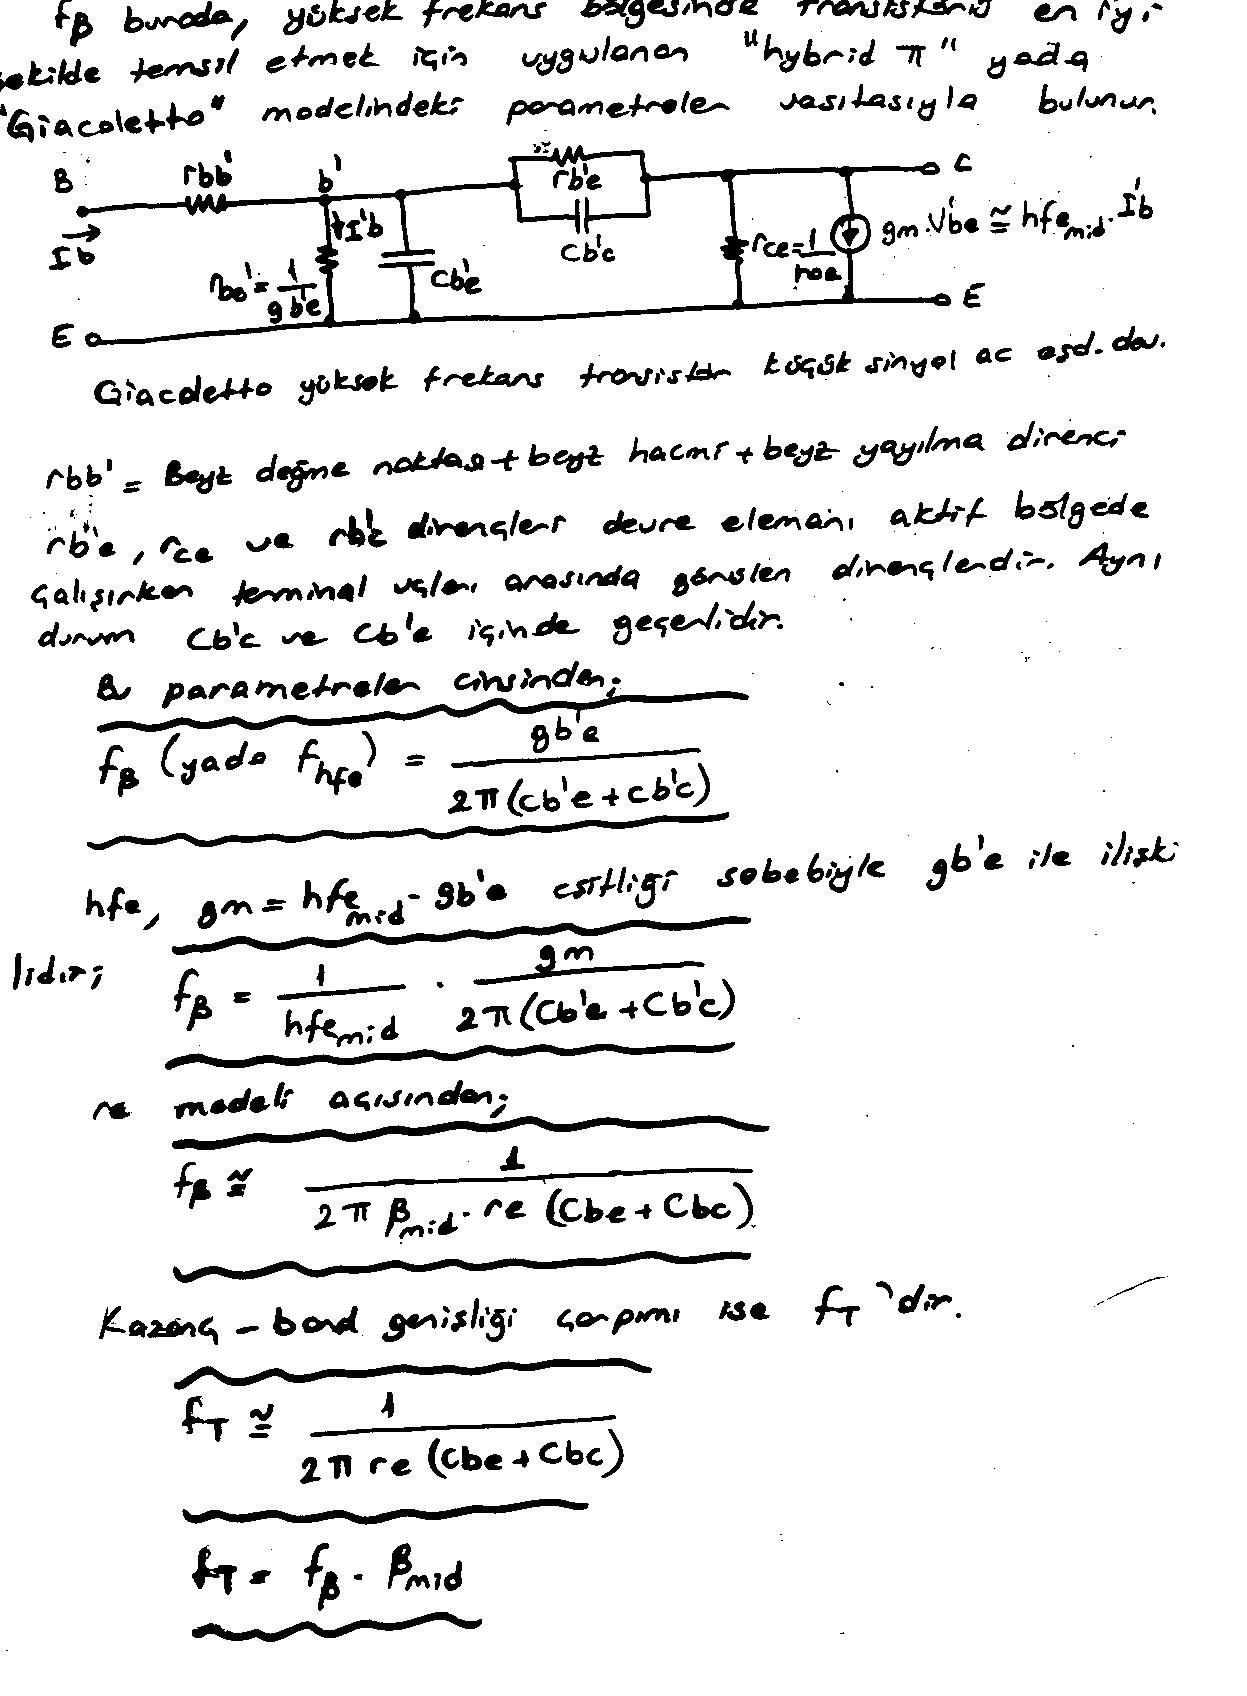 fβ burada, yüksek frekans bölgesinde transistörü en iyi
şekilde temsil etmek için uygulanan "hybrid π" yada
"Giacoletto" modelindeki parametreler vasıtasıyla bulunur.
B rbb' b' rb'e C
Ib I'b Cb'c rce=1/hoe gm.V'be ≅ hfemid.I'b
rbe'=1/gb'e Cb'e
E E
Giacoletto yüksek frekans transistör küçük sinyal ac eşd. dev.
rbb' = Beyz değme noktası + beyz hacmi + beyz yayılma direnci
rb'e, rce ve rb'c dirençleri devre elemanı aktif bölgede
çalışırken terminal uçları arasında görülen dirençlerdir. Aynı
durum Cb'c ve Cb'e içinde geçerlidir.
Bu parametreler cinsinden;
fβ (yada fhfe) = gb'e / 2π(cb'e + cb'c)
hfe, gm = hfemid . gb'e eşitliği sebebiyle gb'e ile ilişki
lidir;
fβ = 1/hfemid . gm / 2π(Cb'e + Cb'c)
re modeli açısından;
fβ ≅ 1 / 2π βmid . re (Cbe + Cbc)
Kazanç - band genişliği çarpımı ise fT 'dir.
fT ≅ 1 / 2π re (Cbe + Cbc)
fT = fβ . βmid